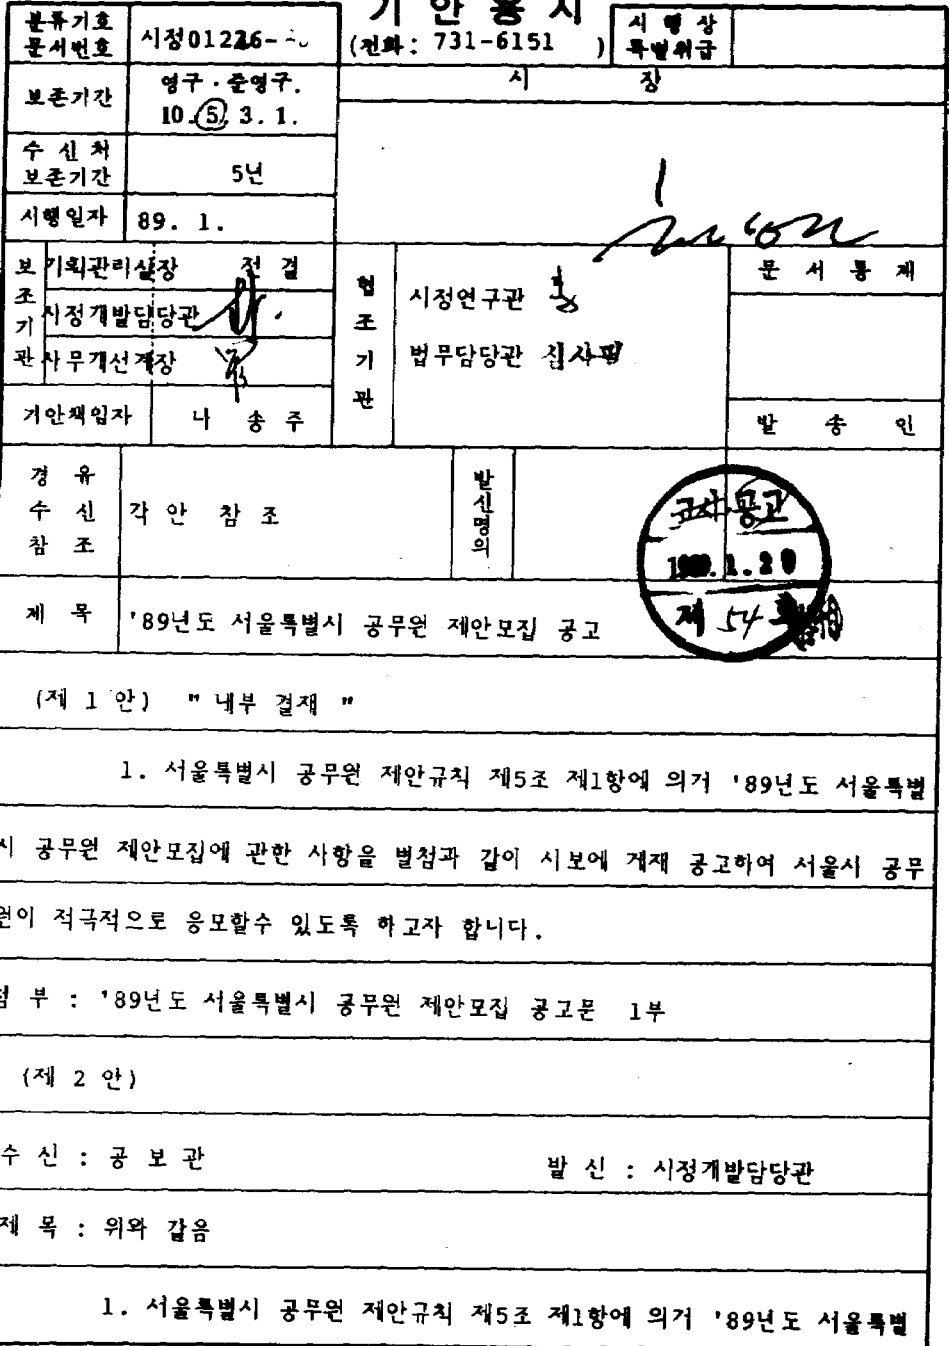 기 안 용 지
분류기호
문서번호
시정01226-
(전화: 731-6151 )
시 행 상
특별취급
보존기간
영구·준영구.
10. 5. 3. 1.
시 장
수 신 처
보존기간
5년
시행일자
89. 1.
보조기관
기획관리실장 전 결
시정개발담당관
사무개선계장
협조기관
시정연구관
법무담당관 심사필
문 서 통 제
기안책임자
나 송 주
발 송 인
경 유
수 신
참 조
각 안 참 조
발신명의
고시공고
1989. 1. 20
제 54 호
제 목
'89년도 서울특별시 공무원 제안모집 공고
(제 1 안) " 내부 결재 "
1. 서울특별시 공무원 제안규칙 제5조 제1항에 의거 '89년도 서울특별
시 공무원 제안모집에 관한 사항을 별첨과 같이 시보에 게재 공고하여 서울시 공무
원이 적극적으로 응모할수 있도록 하고자 합니다.
첨 부 : '89년도 서울특별시 공무원 제안모집 공고문 1부
(제 2 안)
수 신 : 공 보 관
발 신 : 시정개발담당관
제 목 : 위와 같음
1. 서울특별시 공무원 제안규칙 제5조 제1항에 의거 '89년도 서울특별